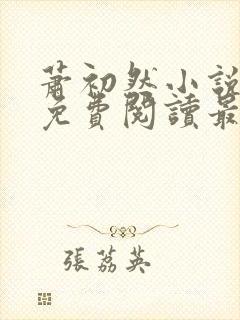 蕭初然小說
免費閱讀最
張荔英